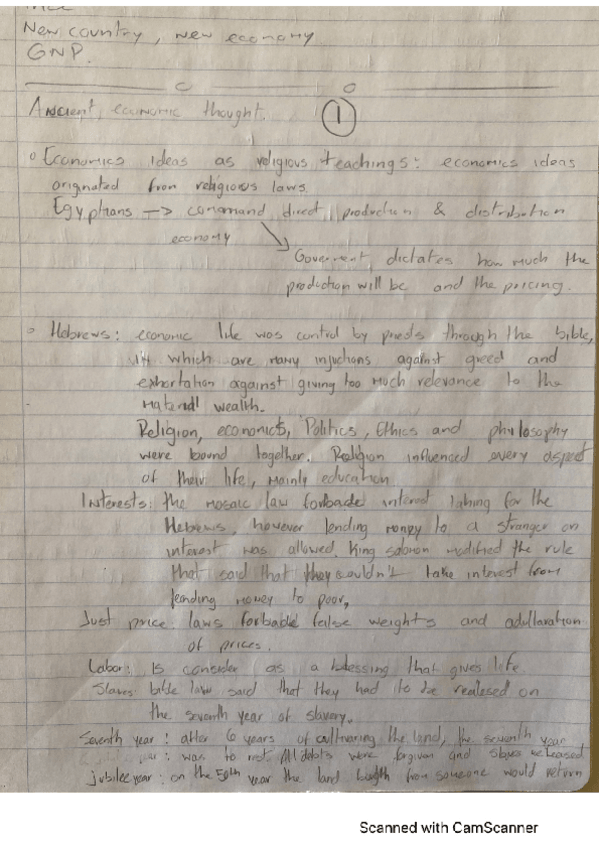 New country, new economy
GNP.
Ancient, economic thought. 1
Economics ideas as religious teachings: economics ideas
originated from religious laws.
Egyptians → command, direct, production & distribution
economy
Goverment dictates how much the
production will be and the pricing.
Hebrews: economic life was control by priests through the bible,
in which are many injuctions against greed and
exhortation against giving too much relevance to the
material wealth.
Religion, economics, Politics, Ethics and philosophy
were bound together. Religion influenced every aspect
of their life, mainly education
Interests: the mosaic law forbade interest taking for the
Hebrews, however lending money to a stranger on
interest was allowed. King solomon modified the rule
that said that they wouldn't take interest from
lending money to poor,
Just price: laws forbade false weights and adulteration
of prices.
Labor: Is consider as a blessing that gives life
Slaves: bible law said that they had to be realesed on
the seventh year of slavery.
Seventh year: after 6 years of cultivaring the land, the seventh year
was to rest. All debts were forgiven and slaves released
jubilee year: on the 50th year the land from someone would return
Scanned with CamScanner